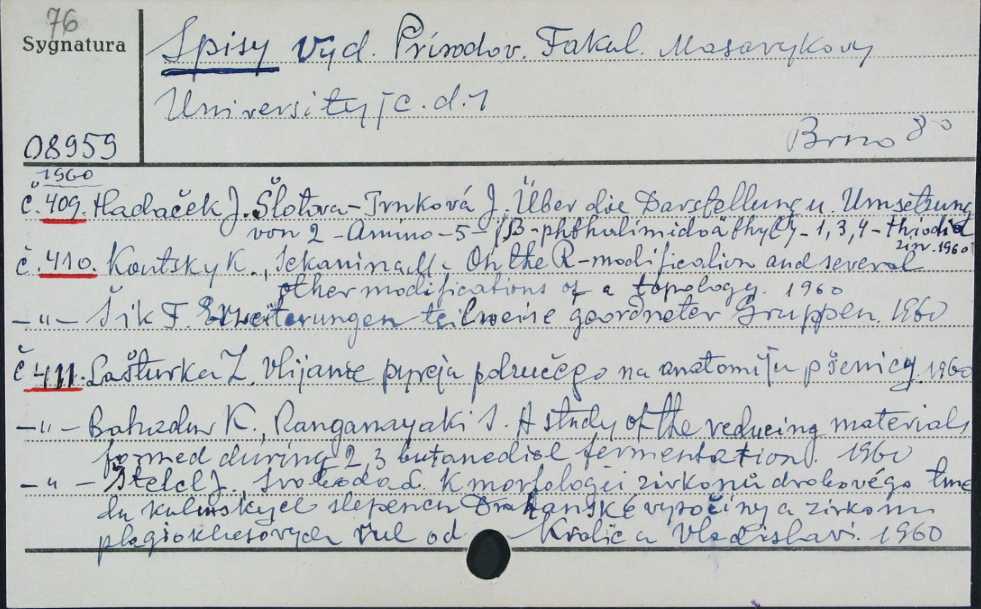 76
Sygnatura
Spisy vyd. Přírodov. Fakul. Masarykovy
University [c. d. 1
Brno 8°
08959
1960
č. 409. Hadaček J. Šlotova-Trnková J. Über die Darstellung u. Umsetzung
von 2-Amino-5-/β-phthalimidoäthyl/-1,3,4-thiodia
zin. 1960
č. 410. Koutsky K., Sekanina M. On the R-modification and several
other modifications of a topology. 1960
-"- Šik F. Erweiterungen teilweise geordneter Gruppen. 1960
č 411. Laštuvka Z. Vlijanie pyreja polzučego na anatomiju pšenicy 1960
-"- Bahadur K., Ranganayaki S. A study of the reducing materials
formed during 2,3 butanediol fermentation. 1960
-"- Štelcl J. Svoboda L. K morfologii zirkonů drobového tme
lu kulmských slepenců Drahanské vysočiny a zirkonu
plagioklasových rul od Kralic a Vladislavi. 1960